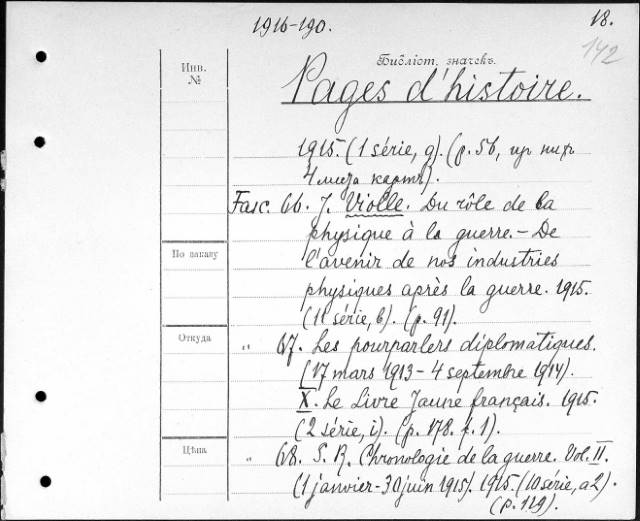 1916-190.
18.
142
Библіот. значекъ.
Инв.
№
Pages d'histoire.
1915. (1 série, 9). (p. 56,
4 листа картъ).
Fasc. 66. J. Violle. Du rôle de la
physique à la guerre. – De
l'avenir de nos industries
По заказу
physiques après la guerre. 1915.
(11 série, b). (p. 91).
Откуда
" 67. Les pourparlers diplomatiques.
(17 mars 1913 – 4 septembre 1914).
X. Le Livre Jaune français. 1915.
(2 série, i). (p. 178. f. 1).
Цѣна
" 68. S. R. Chronologie de la guerre. Vol. II.
(1 janvier – 30 juin 1915). 1915. (10 série, a2).
(p. 119).